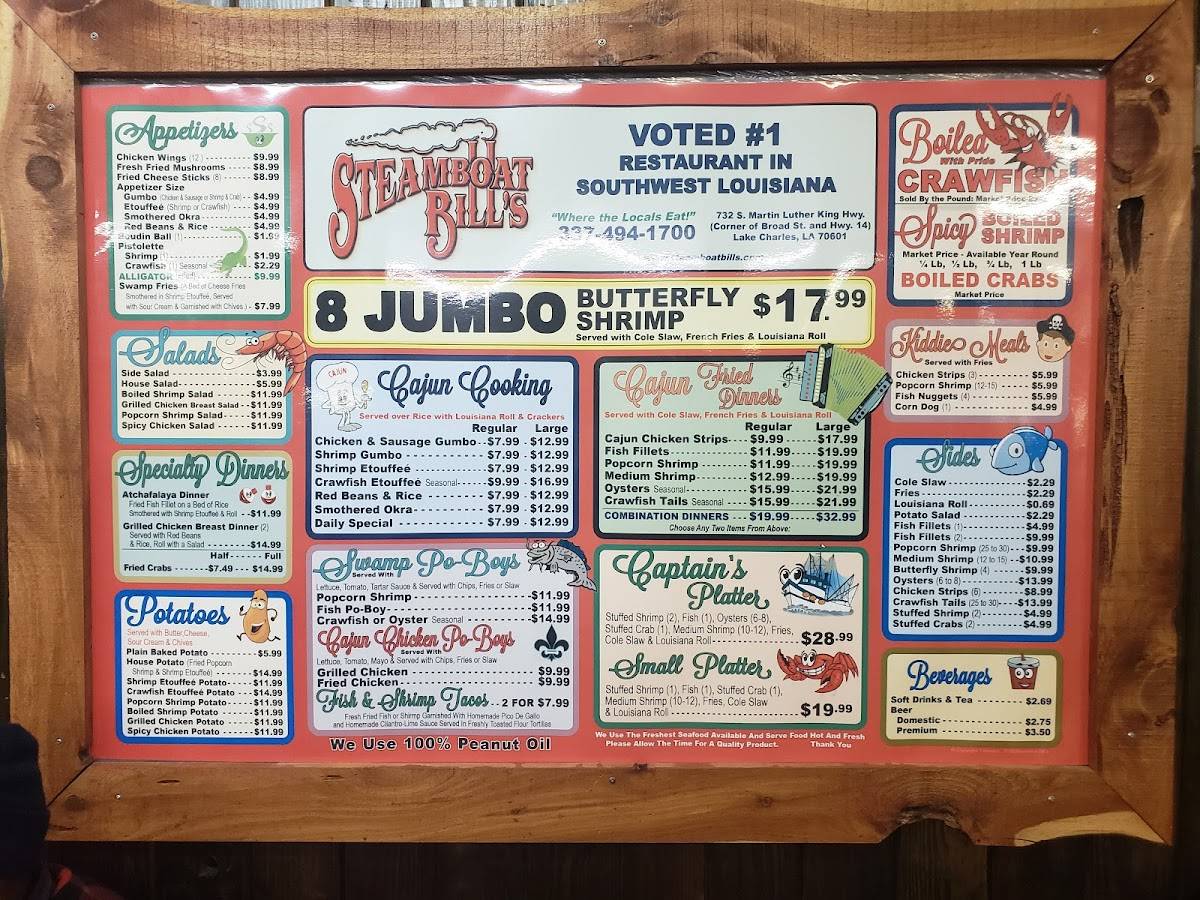 Appetizers
Chicken Wings (12) $9.99
Fresh Fried Mushrooms $8.99
Fried Cheese Sticks (8) $8.99
Appetizer Size
Gumbo (Chicken & Sausage or Shrimp & Crab) $4.99
Etouffeé (Shrimp or Crawfish) $4.99
Smothered Okra $4.99
Red Beans & Rice $4.99
Boudin Ball (1) $1.99
Pistolette
Shrimp (1) $1.99
Crawfish (1) Seasonal $2.29
ALLIGATOR $9.99
Swamp Fries (A Bed of Cheese Fries
Smothered in Shrimp Etouffeé, Served
with Sour Cream & Garnished with Chives) $7.99
Salads
Side Salad $3.99
House Salad $5.99
Boiled Shrimp Salad $11.99
Grilled Chicken Breast Salad $11.99
Popcorn Shrimp Salad $11.99
Spicy Chicken Salad $11.99
Specialty Dinners
Atchafalaya Dinner
Fried Fish Fillet on a Bed of Rice
Smothered with Shrimp Etouffeé & Roll $11.99
Grilled Chicken Breast Dinner (2)
Served with Red Beans
& Rice, Roll with a Salad $14.99
Half Full
Fried Crabs $7.49 $14.99
Potatoes
Served with Butter, Cheese,
Sour Cream & Chives
Plain Baked Potato $5.99
House Potato (Fried Popcorn
Shrimp & Shrimp Etouffeé) $14.99
Shrimp Etouffeé Potato $11.99
Crawfish Etouffeé Potato $14.99
Popcorn Shrimp Potato $11.99
Boiled Shrimp Potato $11.99
Grilled Chicken Potato $11.99
Spicy Chicken Potato $11.99
STEAMBOAT
BILL'S
VOTED #1
RESTAURANT IN
SOUTHWEST LOUISIANA
"Where the Locals Eat!"
337-494-1700
732 S. Martin Luther King Hwy.
(Corner of Broad St. and Hwy. 14)
Lake Charles, LA 70601
8 JUMBO BUTTERFLY SHRIMP $17.99
Served with Cole Slaw, French Fries & Louisiana Roll
CAJUN
Cajun Cooking
Served over Rice with Louisiana Roll & Crackers
Regular Large
Chicken & Sausage Gumbo $7.99 $12.99
Shrimp Gumbo $7.99 $12.99
Shrimp Etouffeé $7.99 $12.99
Crawfish Etouffeé Seasonal $9.99 $16.99
Red Beans & Rice $7.99 $12.99
Smothered Okra $7.99 $12.99
Daily Special $7.99 $12.99
Swamp Po-Boys
Served With
Lettuce, Tomato, Tartar Sauce & Served with Chips, Fries or Slaw
Popcorn Shrimp $11.99
Fish Po-Boy $11.99
Crawfish or Oyster Seasonal $14.99
Cajun Chicken Po-Boys
Served With
Lettuce, Tomato, Mayo & Served with Chips, Fries or Slaw
Grilled Chicken $9.99
Fried Chicken $9.99
Fish & Shrimp Tacos 2 FOR $7.99
Fresh Fried Fish or Shrimp Garnished With Homemade Pico De Gallo
and Homemade Cilantro-Lime Sauce Served In Freshly Toasted Flour Tortillas
We Use 100% Peanut Oil
Cajun Fried
Dinners
Served with Cole Slaw, French Fries & Louisiana Roll
Regular Large
Cajun Chicken Strips $9.99 $17.99
Fish Fillets $11.99 $19.99
Popcorn Shrimp $11.99 $19.99
Medium Shrimp $12.99 $19.99
Oysters Seasonal $15.99 $21.99
Crawfish Tails Seasonal $15.99 $21.99
COMBINATION DINNERS $19.99 $32.99
Choose Any Two Items From Above:
Captain's
Platter
Stuffed Shrimp (2), Fish (1), Oysters (6-8),
Stuffed Crab (1), Medium Shrimp (10-12), Fries,
Cole Slaw & Louisiana Roll $28.99
Small Platter
Stuffed Shrimp (1), Fish (1), Stuffed Crab (1),
Medium Shrimp (10-12), Fries, Cole Slaw
& Louisiana Roll $19.99
We Use The Freshest Seafood Available And Serve Food Hot And Fresh
Please Allow The Time For A Quality Product. Thank You
Boiled
With Pride
CRAWFISH
Sold By the Pound: Market Price
Spicy BOILED SHRIMP
Market Price - Available Year Round
¼ Lb, ½ Lb, ¾ Lb, 1 Lb
BOILED CRABS
Market Price
Kiddie Meals
Served with Fries
Chicken Strips (3) $5.99
Popcorn Shrimp (12-15) $5.99
Fish Nuggets (4) $5.99
Corn Dog (1) $4.99
Sides
Cole Slaw $2.29
Fries $2.29
Louisiana Roll $0.69
Potato Salad $2.29
Fish Fillets (1) $4.99
Fish Fillets (2) $9.99
Popcorn Shrimp (25 to 30) $9.99
Medium Shrimp (12 to 15) $10.99
Butterfly Shrimp (4) $9.99
Oysters (6 to 8) $13.99
Chicken Strips (6) $8.99
Crawfish Tails (25 to 30) $13.99
Stuffed Shrimp (2) $4.99
Stuffed Crabs (2) $4.99
Beverages
Soft Drinks & Tea $2.69
Beer
Domestic $2.75
Premium $3.50